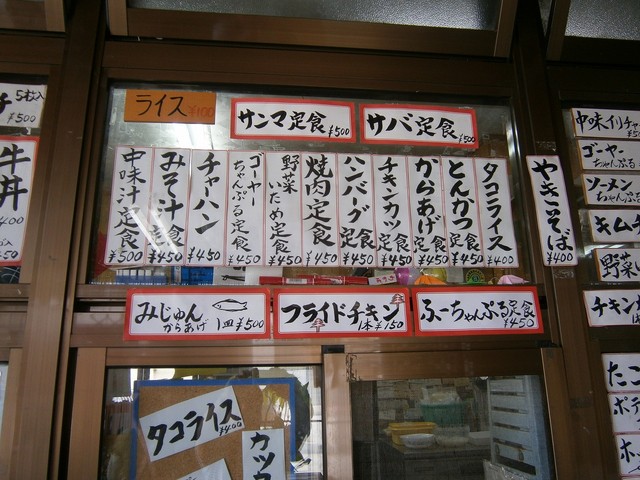 ライス ¥100
サンマ定食 ¥500
サバ定食 ¥500
5む入
¥500
牛丼
タコライス ¥400
とんかつ定食 ¥450
からあげ定食 ¥450
チキンカツ定食 ¥450
ハンバーグ定食 ¥450
焼肉定食 ¥450
野菜いため定食 ¥450
ゴーヤーちゃんぷる定食 ¥450
チャーハン ¥450
みそ汁定食 ¥450
中味汁定食 ¥500
やきそば ¥400
中味イリチャ
ゴーヤー
ちゃんぷる
ソーメン
ちゃんぷる
キムチ
野菜
チキン
みじゅん
からあげ 1皿¥500
フライドチキン
1本¥150
ふーちゃんぷる定食
¥450
タコライス
¥400
カツ
たこ
ポテ